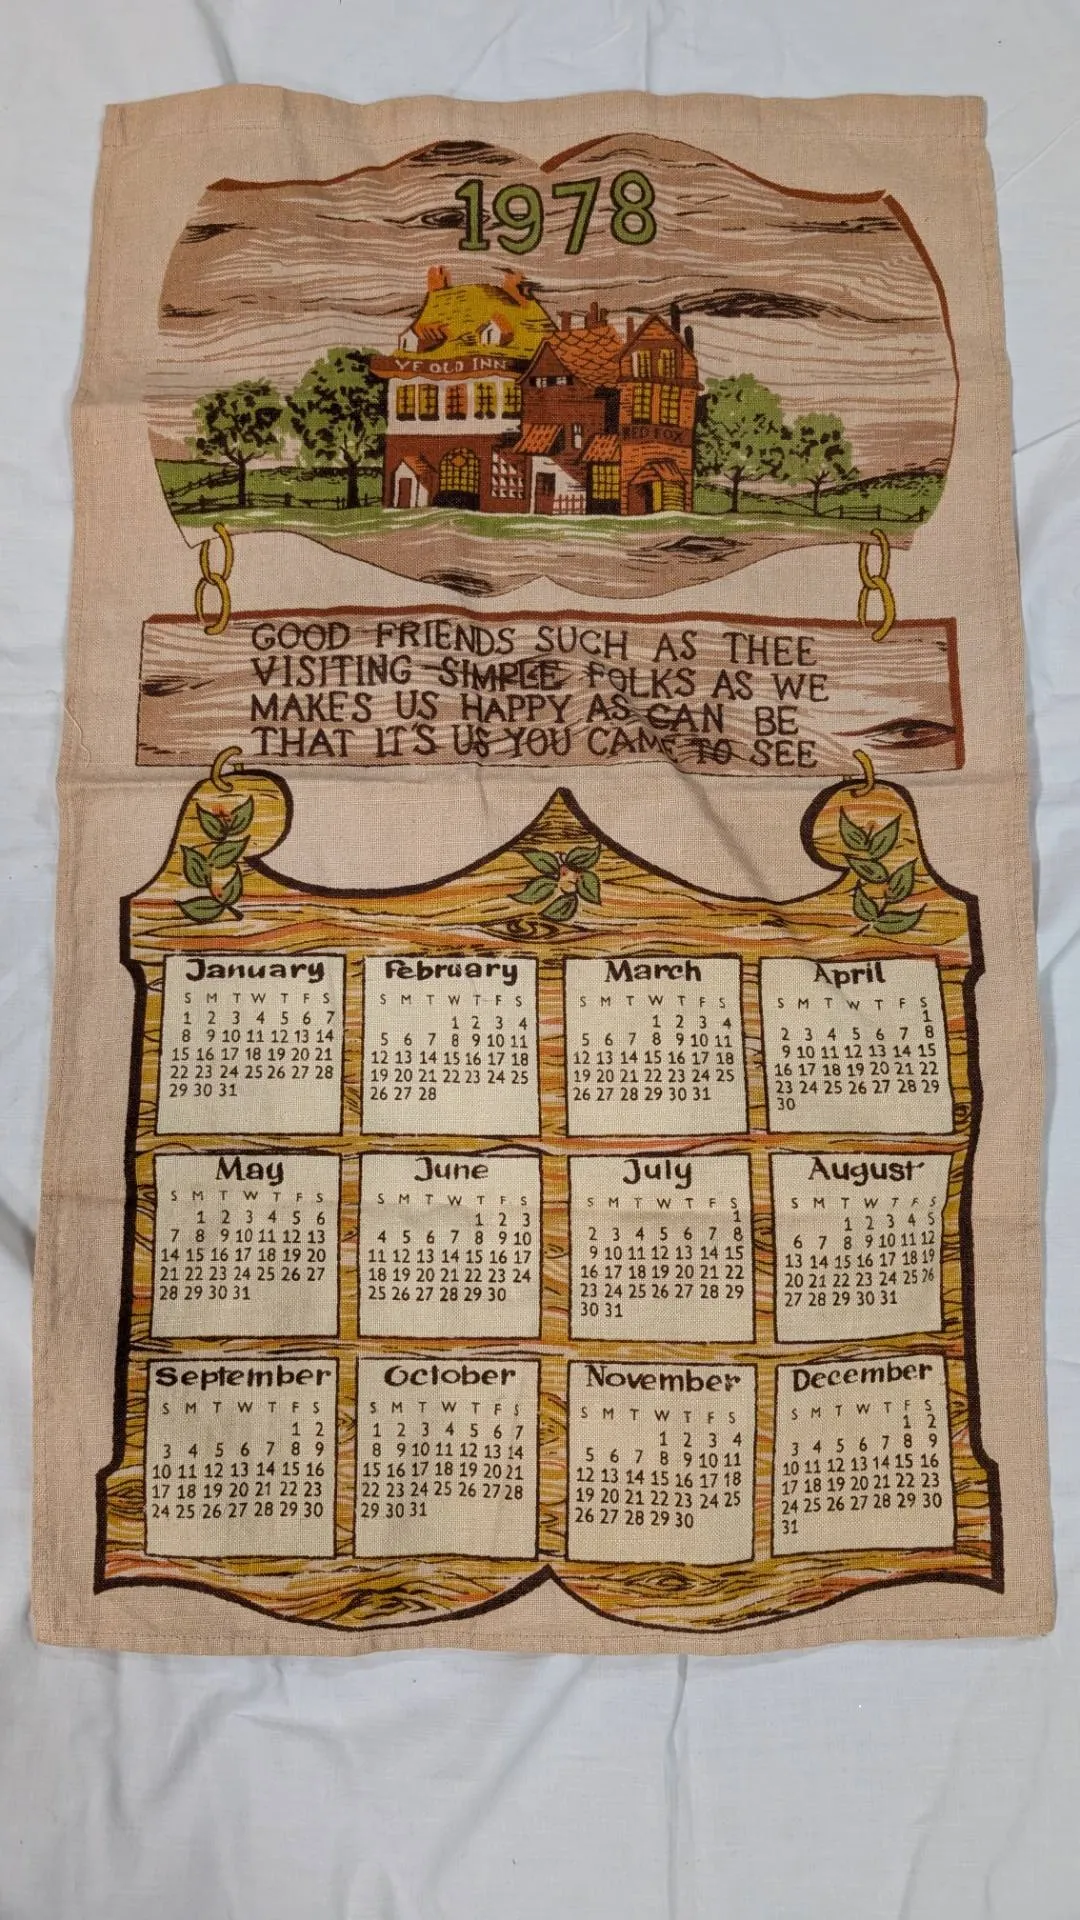 1978
YE OLD INN
RED FOX
GOOD FRIENDS SUCH AS THEE
VISITING SIMPLE FOLKS AS WE
MAKES US HAPPY AS CAN BE
THAT IT'S US YOU CAME TO SEE
January
S M T W T F S
1 2 3 4 5 6 7
8 9 10 11 12 13 14
15 16 17 18 19 20 21
22 23 24 25 26 27 28
29 30 31
February
S M T W T F S
1 2 3 4
5 6 7 8 9 10 11
12 13 14 15 16 17 18
19 20 21 22 23 24 25
26 27 28
March
S M T W T F S
1 2 3 4
5 6 7 8 9 10 11
12 13 14 15 16 17 18
19 20 21 22 23 24 25
26 27 28 29 30 31
April
S M T W T F S
1
2 3 4 5 6 7 8
9 10 11 12 13 14 15
16 17 18 19 20 21 22
23 24 25 26 27 28 29
30
May
S M T W T F S
1 2 3 4 5 6
7 8 9 10 11 12 13
14 15 16 17 18 19 20
21 22 23 24 25 26 27
28 29 30 31
June
S M T W T F S
1 2 3
4 5 6 7 8 9 10
11 12 13 14 15 16 17
18 19 20 21 22 23 24
25 26 27 28 29 30
July
S M T W T F S
1
2 3 4 5 6 7 8
9 10 11 12 13 14 15
16 17 18 19 20 21 22
23 24 25 26 27 28 29
30 31
August
S M T W T F S
1 2 3 4 5
6 7 8 9 10 11 12
13 14 15 16 17 18 19
20 21 22 23 24 25 26
27 28 29 30 31
September
S M T W T F S
1 2
3 4 5 6 7 8 9
10 11 12 13 14 15 16
17 18 19 20 21 22 23
24 25 26 27 28 29 30
October
S M T W T F S
1 2 3 4 5 6 7
8 9 10 11 12 13 14
15 16 17 18 19 20 21
22 23 24 25 26 27 28
29 30 31
November
S M T W T F S
1 2 3 4
5 6 7 8 9 10 11
12 13 14 15 16 17 18
19 20 21 22 23 24 25
26 27 28 29 30
December
S M T W T F S
1 2
3 4 5 6 7 8 9
10 11 12 13 14 15 16
17 18 19 20 21 22 23
24 25 26 27 28 29 30
31